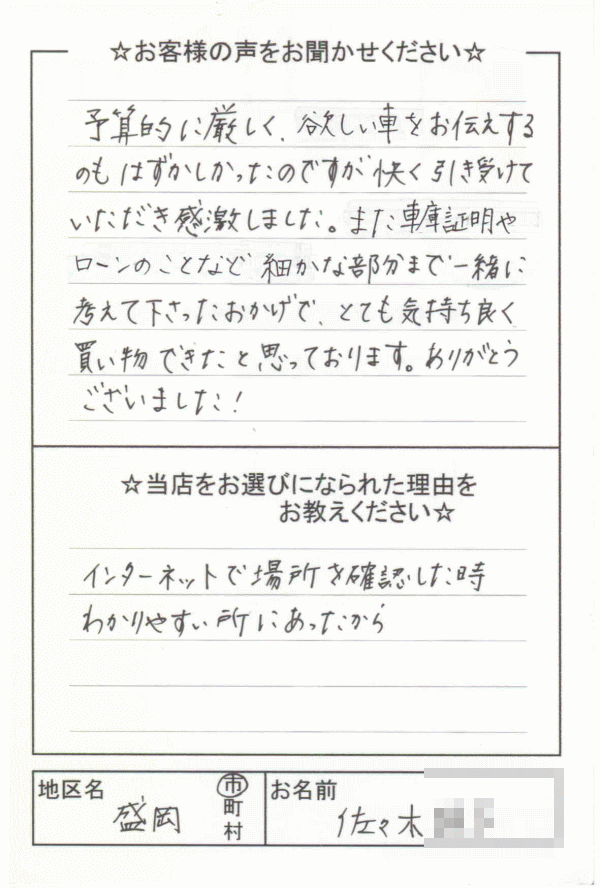 ☆お客様の声をお聞かせください☆
予算的に厳しく、欲しい車をお伝えする
のもはずかしかったのですが快く引き受けて
いただき感激しました。また車庫証明や
ローンのことなど細かな部分まで一緒に
考えて下さったおかげで、とても気持ち良く
買い物できたと思っております。ありがとう
ございました！
☆当店をお選びになられた理由を
お教えください☆
インターネットで場所を確認した時
わかりやすい所にあったから
地区名 盛岡 市町村
お名前 佐々木